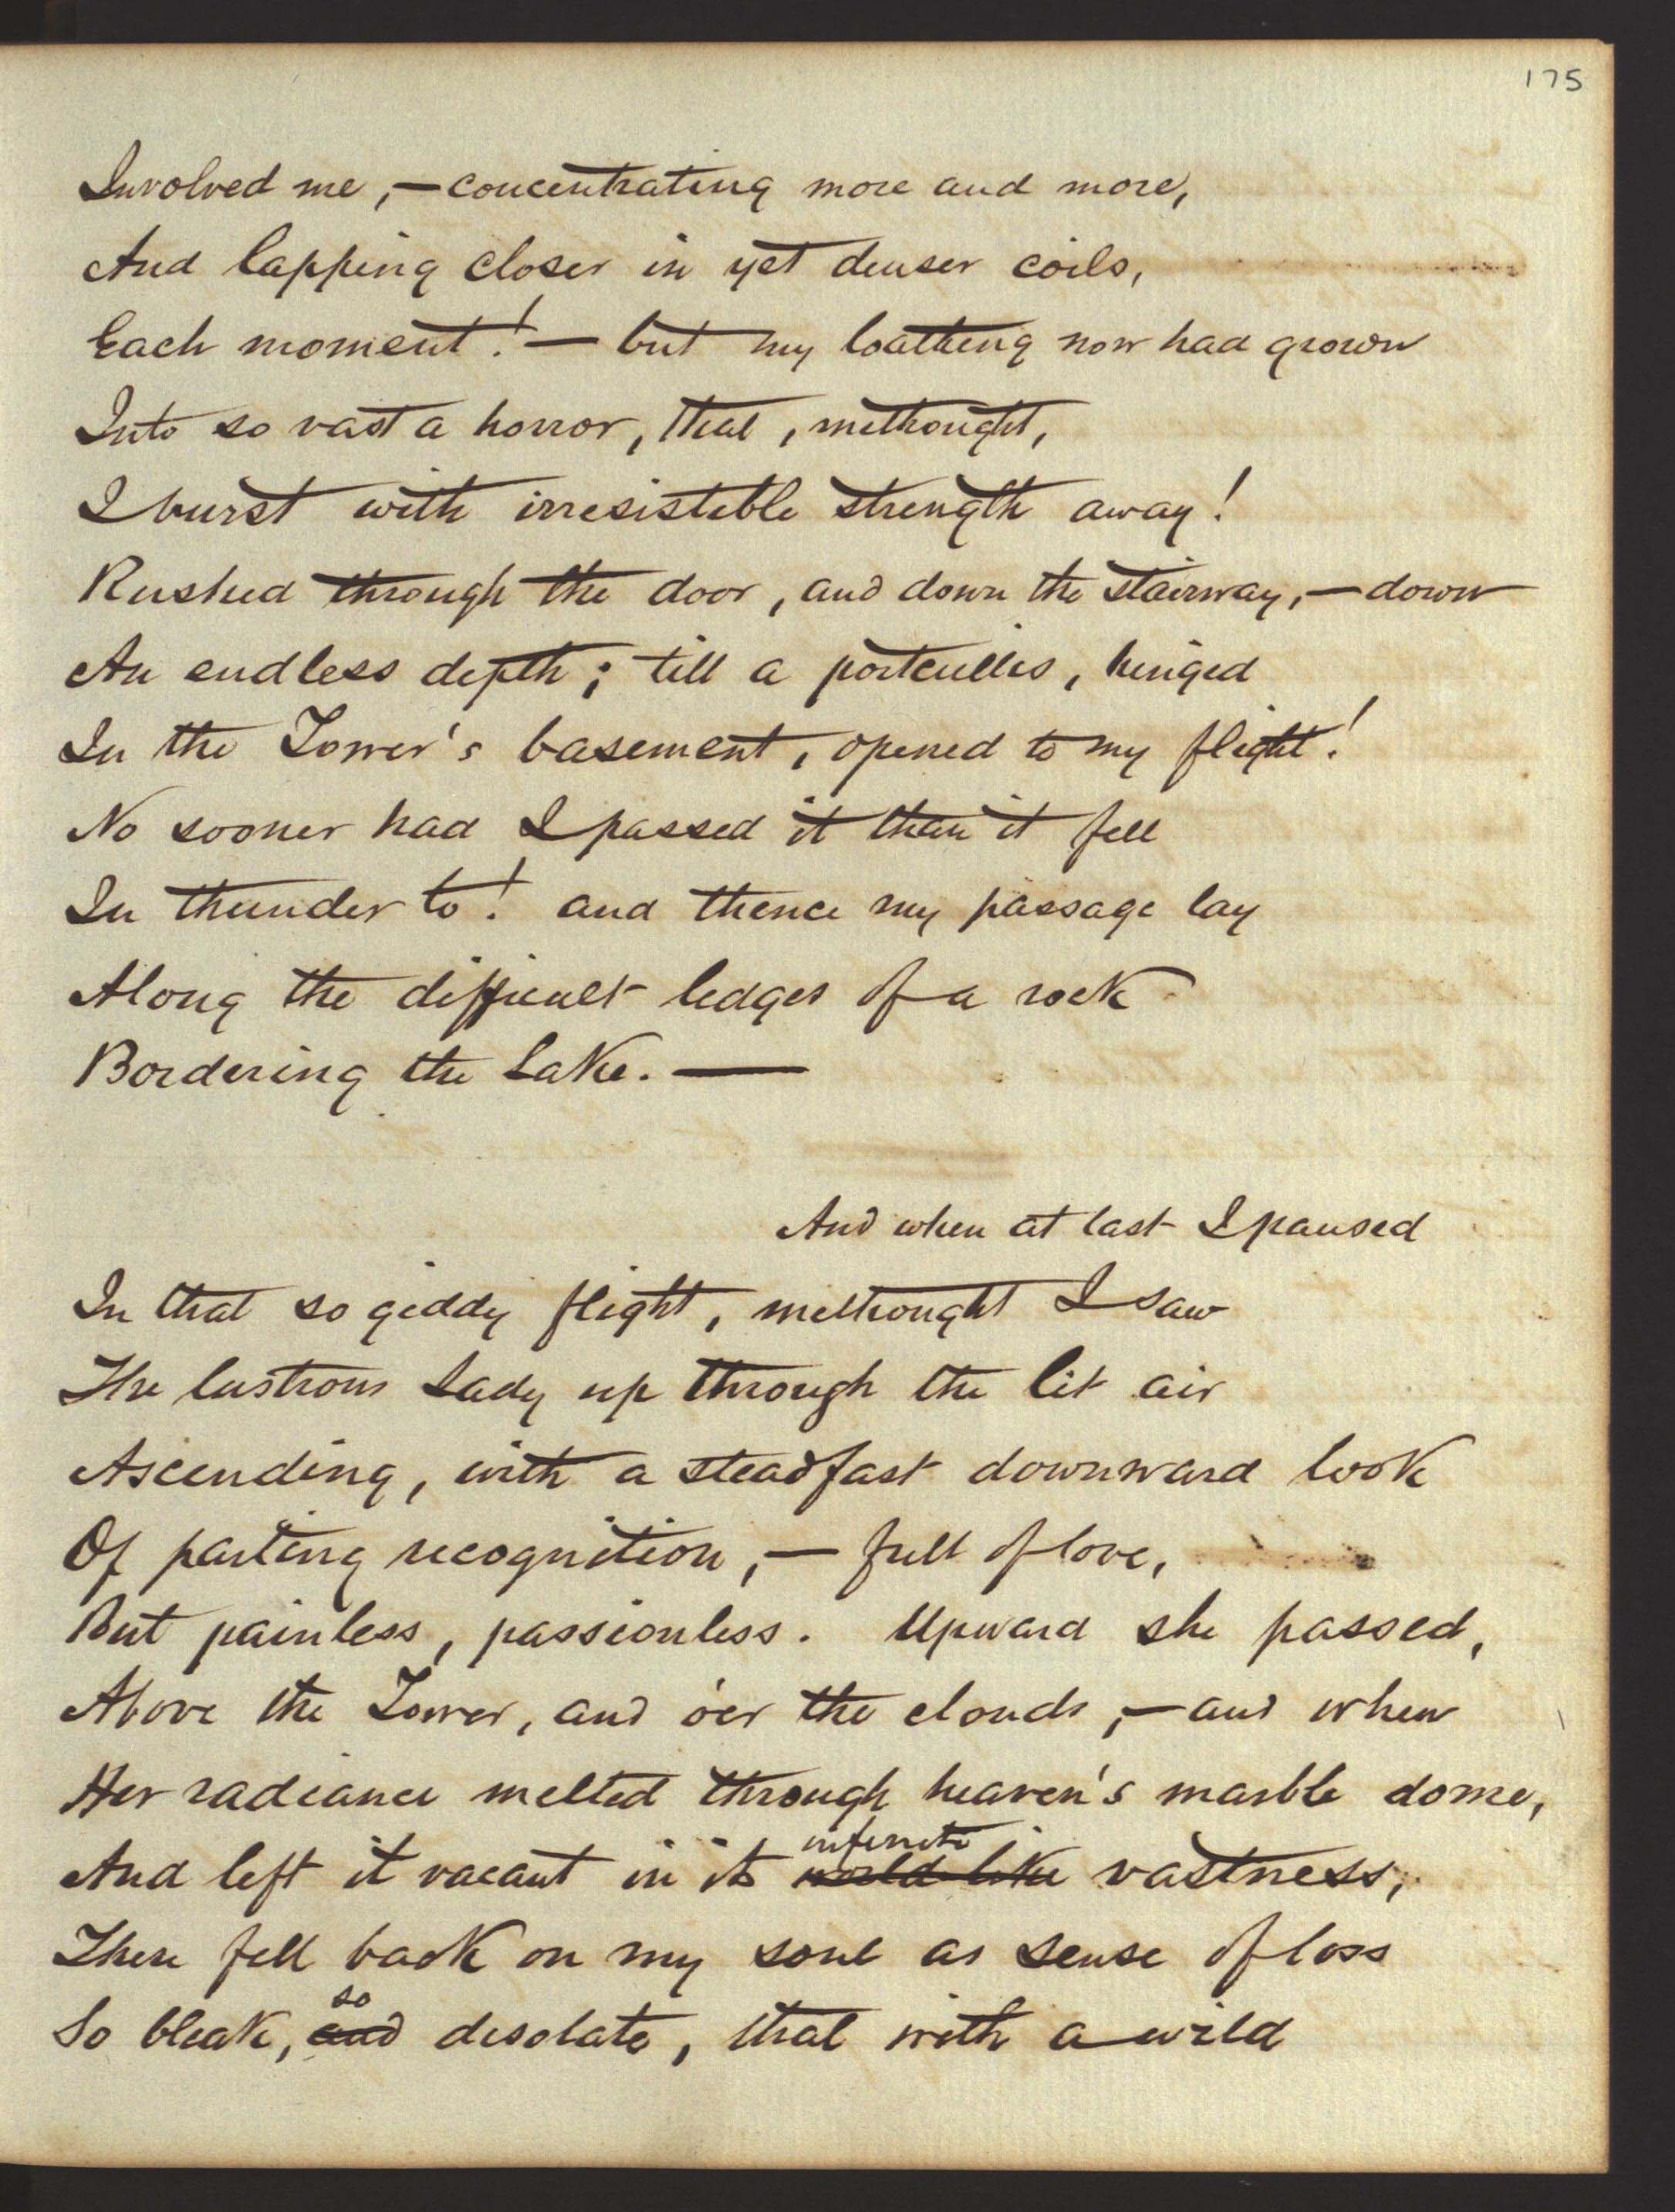 175
Involved me, — concentrating more and more,
And lapping closer in yet denser coils,
Each moment! — but my loathing now had grown
Into so vast a horror, that, methought,
I burst with irresistible strength away!
Rushed through the door, and down the stairway, — down
An endless depth; till a portcullis, hinged
In the Tower's basement, opened to my flight!
No sooner had I passed it than it fell
In thunder to! and thence my passage lay
Along the difficult ledges of a rock
Bordering the Lake. —
And when at last I paused
In that so giddy flight, methought I saw
The lustrous Lady up through the lit air
Ascending, with a steadfast downward look
Of parting recognition, — full of love,
But painless, passionless. Upward she passed,
Above the Tower, and o'er the clouds, — and when
Her radiance melted through heaven's marble dome,
infinite
And left it vacant in its world-like vastness,
There fell back on my soul as sense of loss
so
So bleak, and desolate, that with a wild